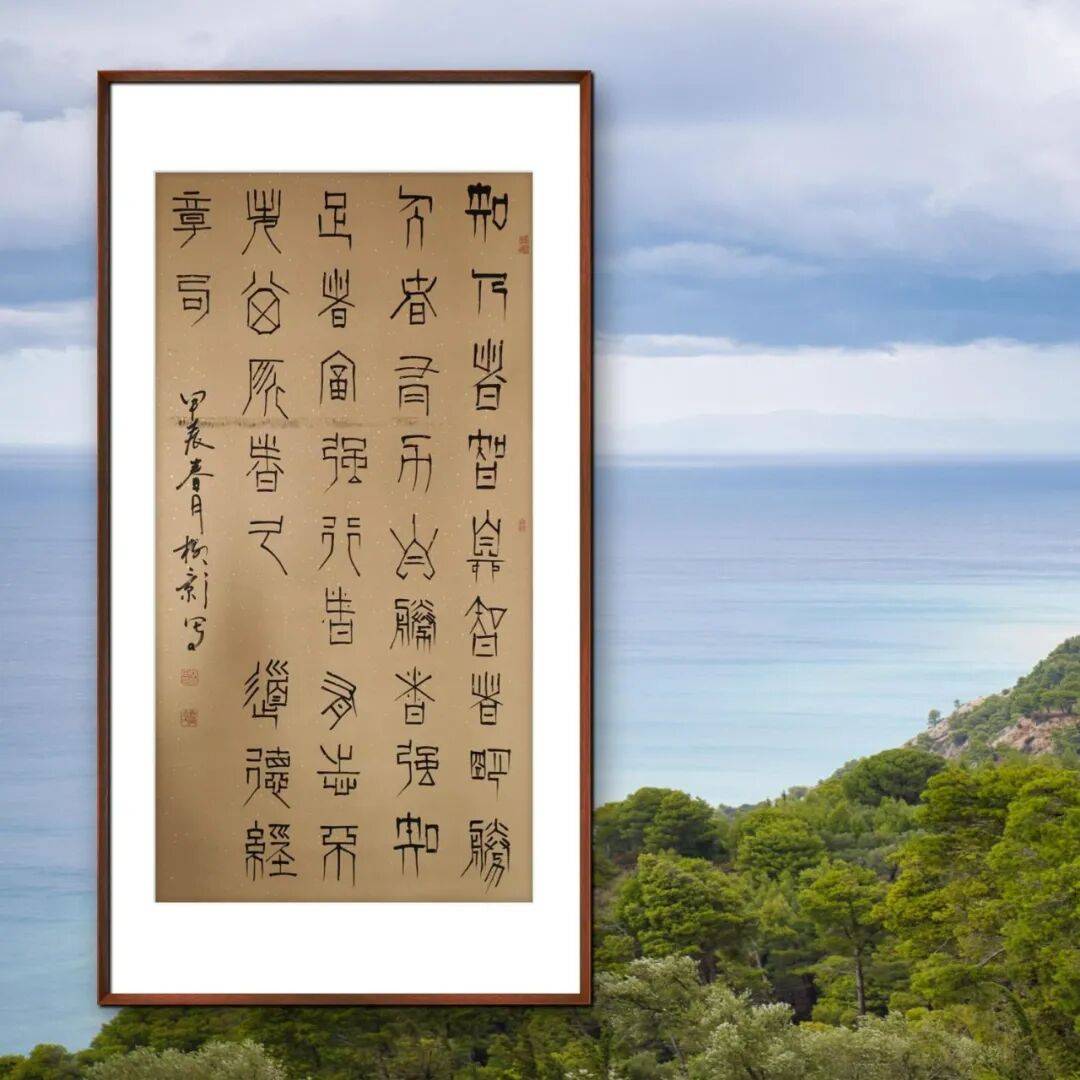 知人者智自智者明勝
人者有力自勝者強知
足者富強行者有志不
失其所者久 道德經
章 甲辰春月树影写